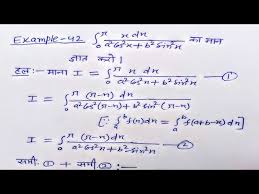 Example-42 ∫₀^π x dx / a²cos²x + b²sin²x का मान
ज्ञात करो।
हल:- माना I = ∫₀^π x dx / a²cos²x + b²sin²x —①
I = ∫₀^π (π-x) dx / a²cos²(π-x) + b²sin²(π-x)
[∵ ∫ₐᵇ f(x) dx = ∫ₐᵇ f(a+b-x) dx]
I = ∫₀^π (π-x) dx / a²cos²x + b²sin²x —②
समी. ① + समी ② :—